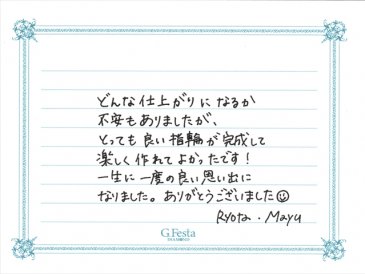 どんな仕上がりになるか
不安もありましたが、
とっても良い指輪が完成して
楽しく作れてよかったです！
一生に一度の良い思い出に
なりました。ありがとうございました☺
Ryota. Mayu
G.Festa
DIAMOND